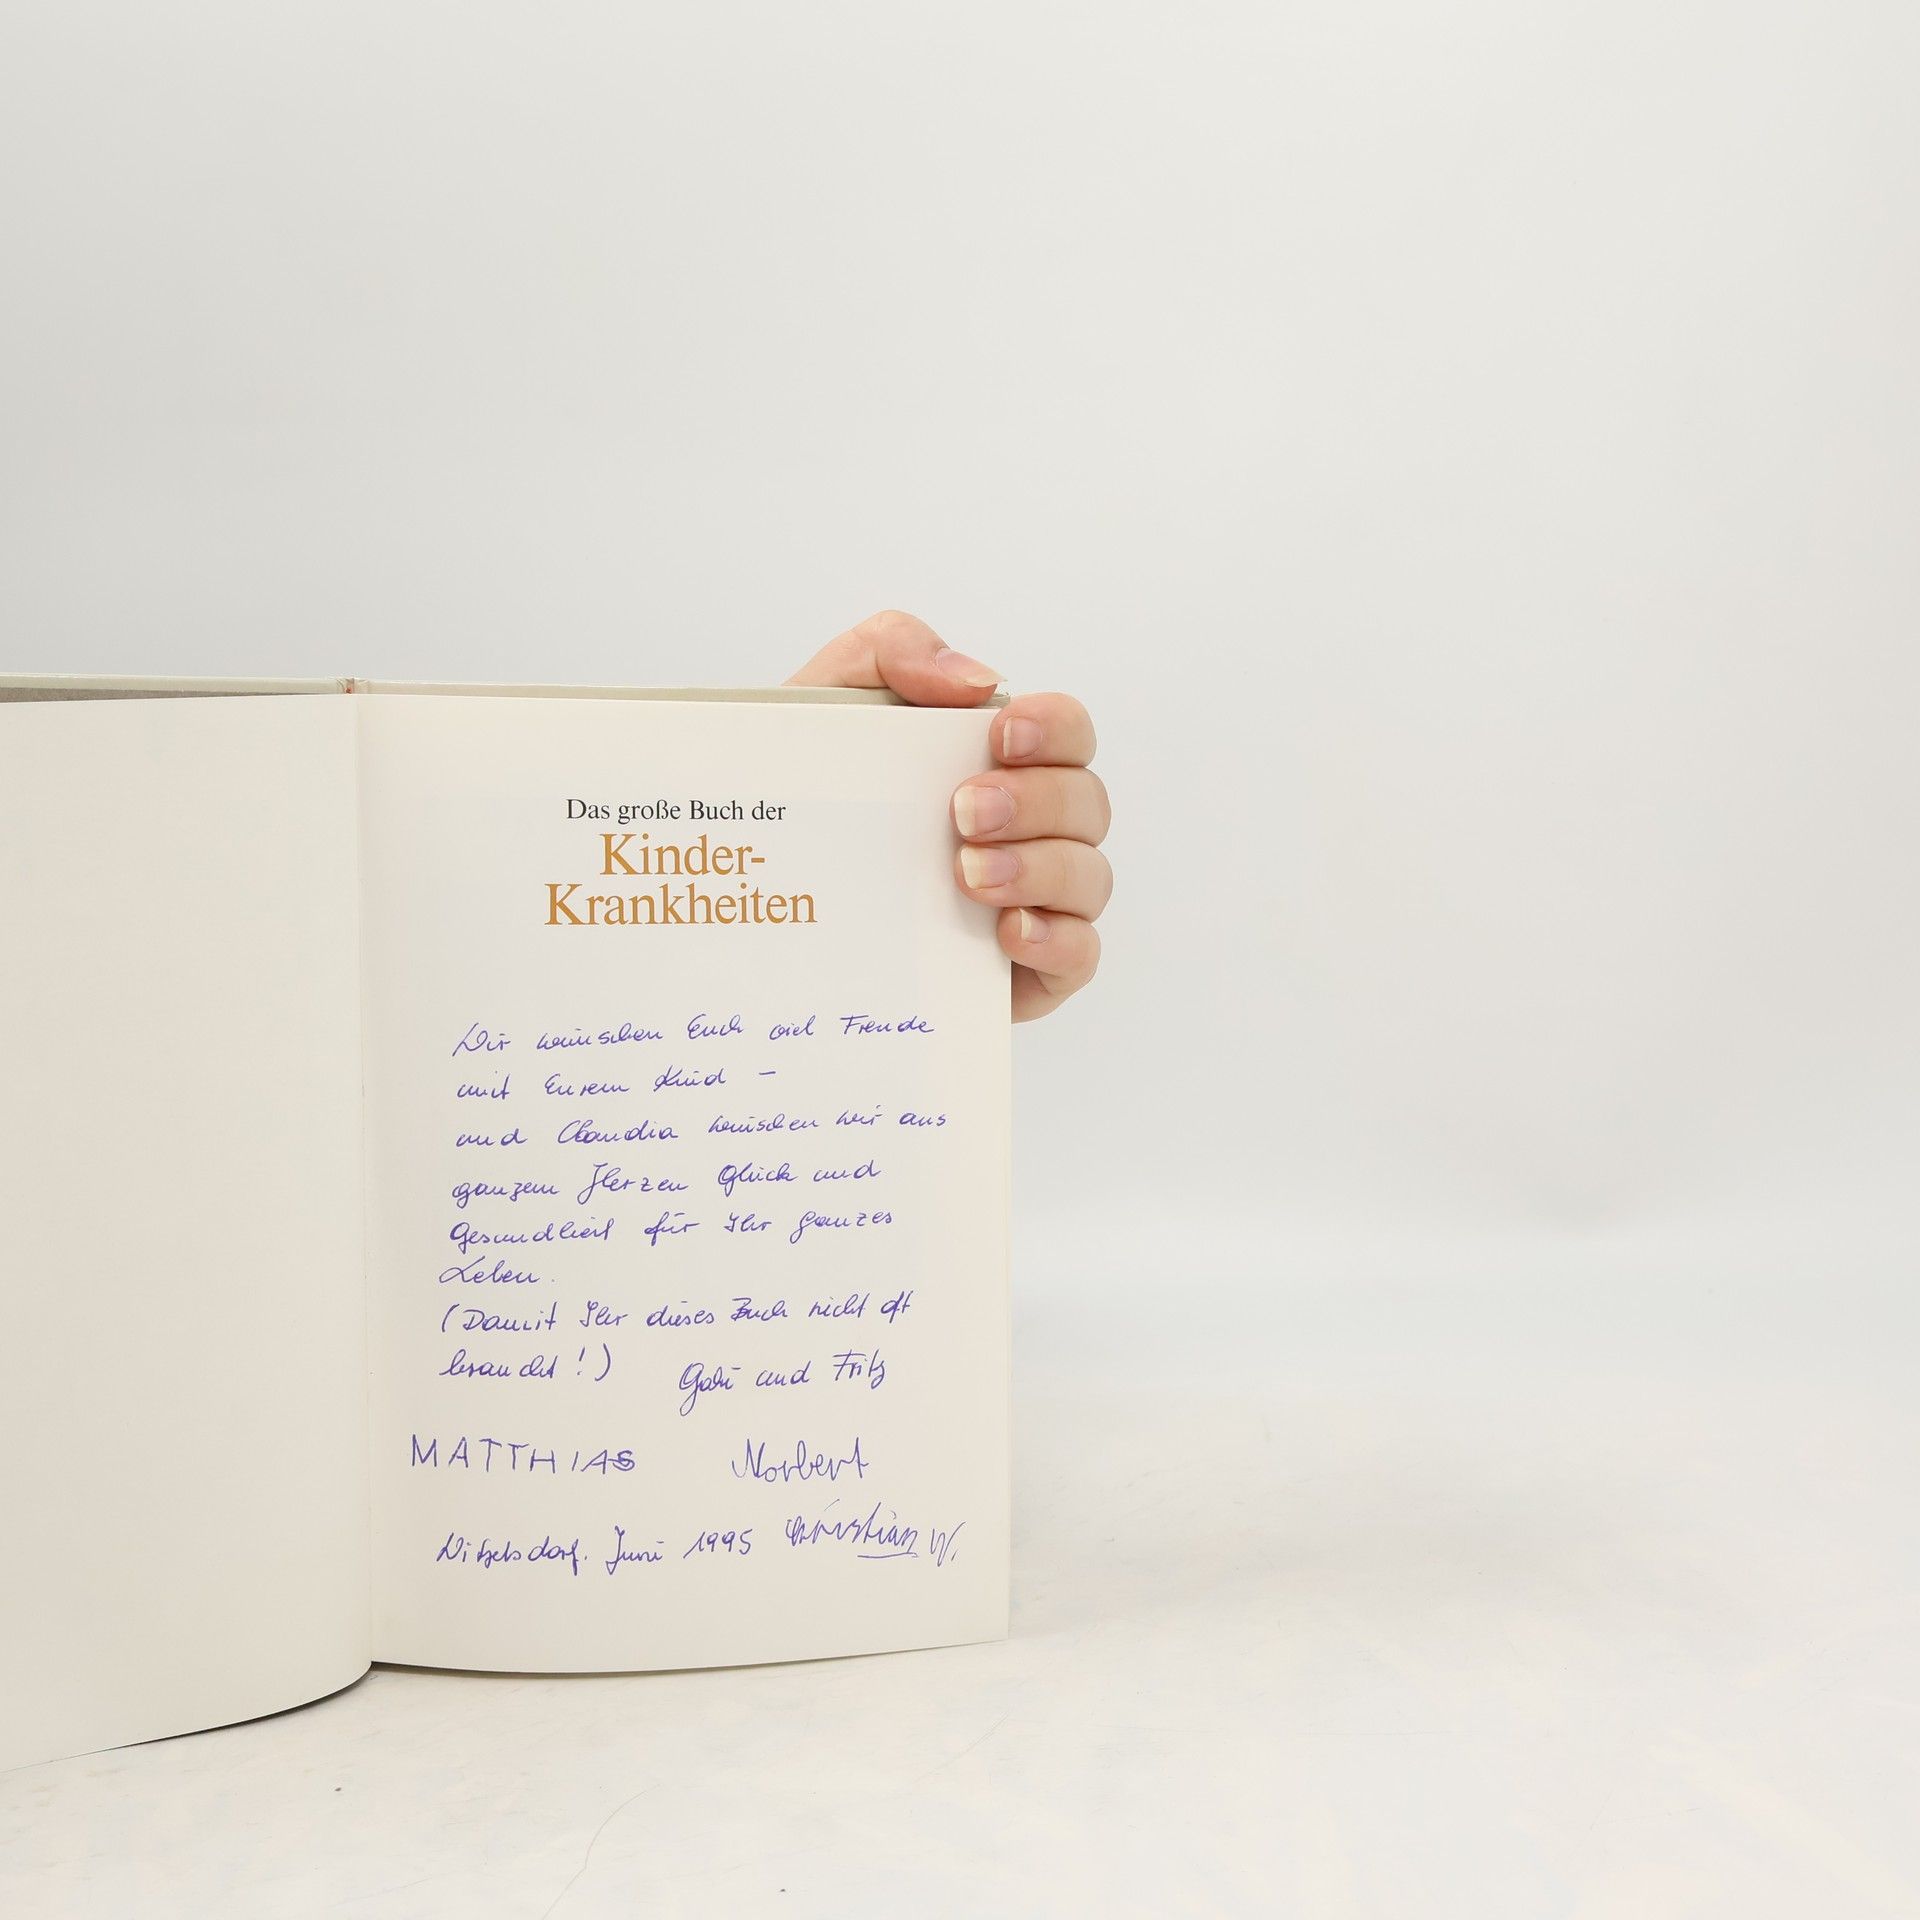 Das große Buch der
Kinder-
Krankheiten
Wir wünschen Euch viel Freude
mit Eurem Kind –
und Claudia wünschen wir aus
ganzem Herzen Glück und
Gesundheit für Ihr ganzes
Leben.
(Damit Ihr dieses Buch nicht oft
braucht!) Gabi und Fritz
MATTHIAS Norbert
Juni 1995 Christian W.